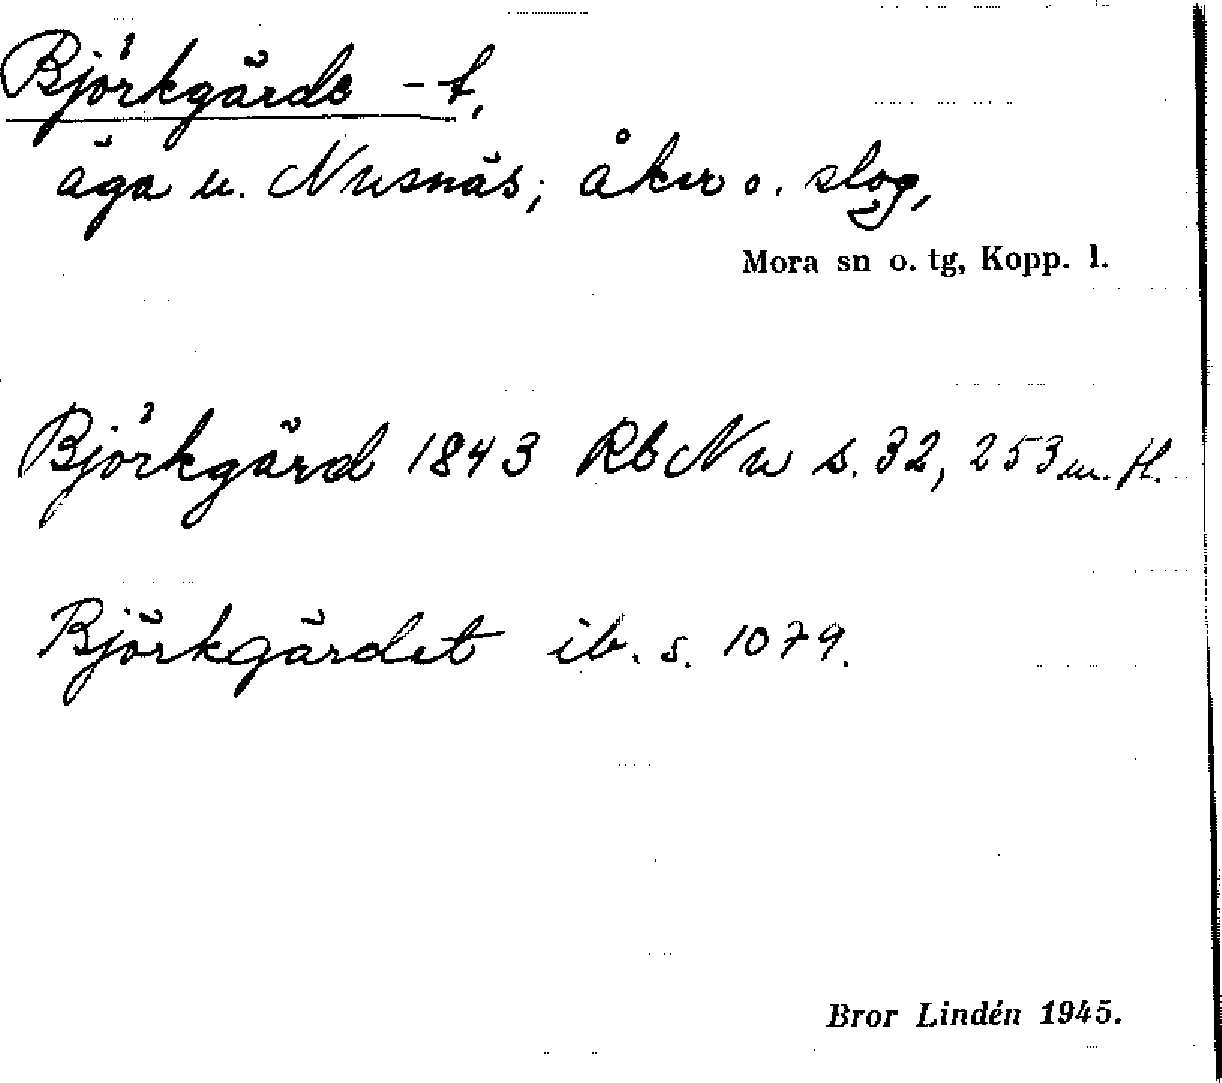 Björkgärde -t,
äga u. Nusnäs; åker o. slog,
Mora sn o. tg, Kopp. l.
Björkgärd 1843 Rb Nu s. 32, 253 m. fl.
Björkgärdet ib. s. 1079.
Bror Lindén 1945.